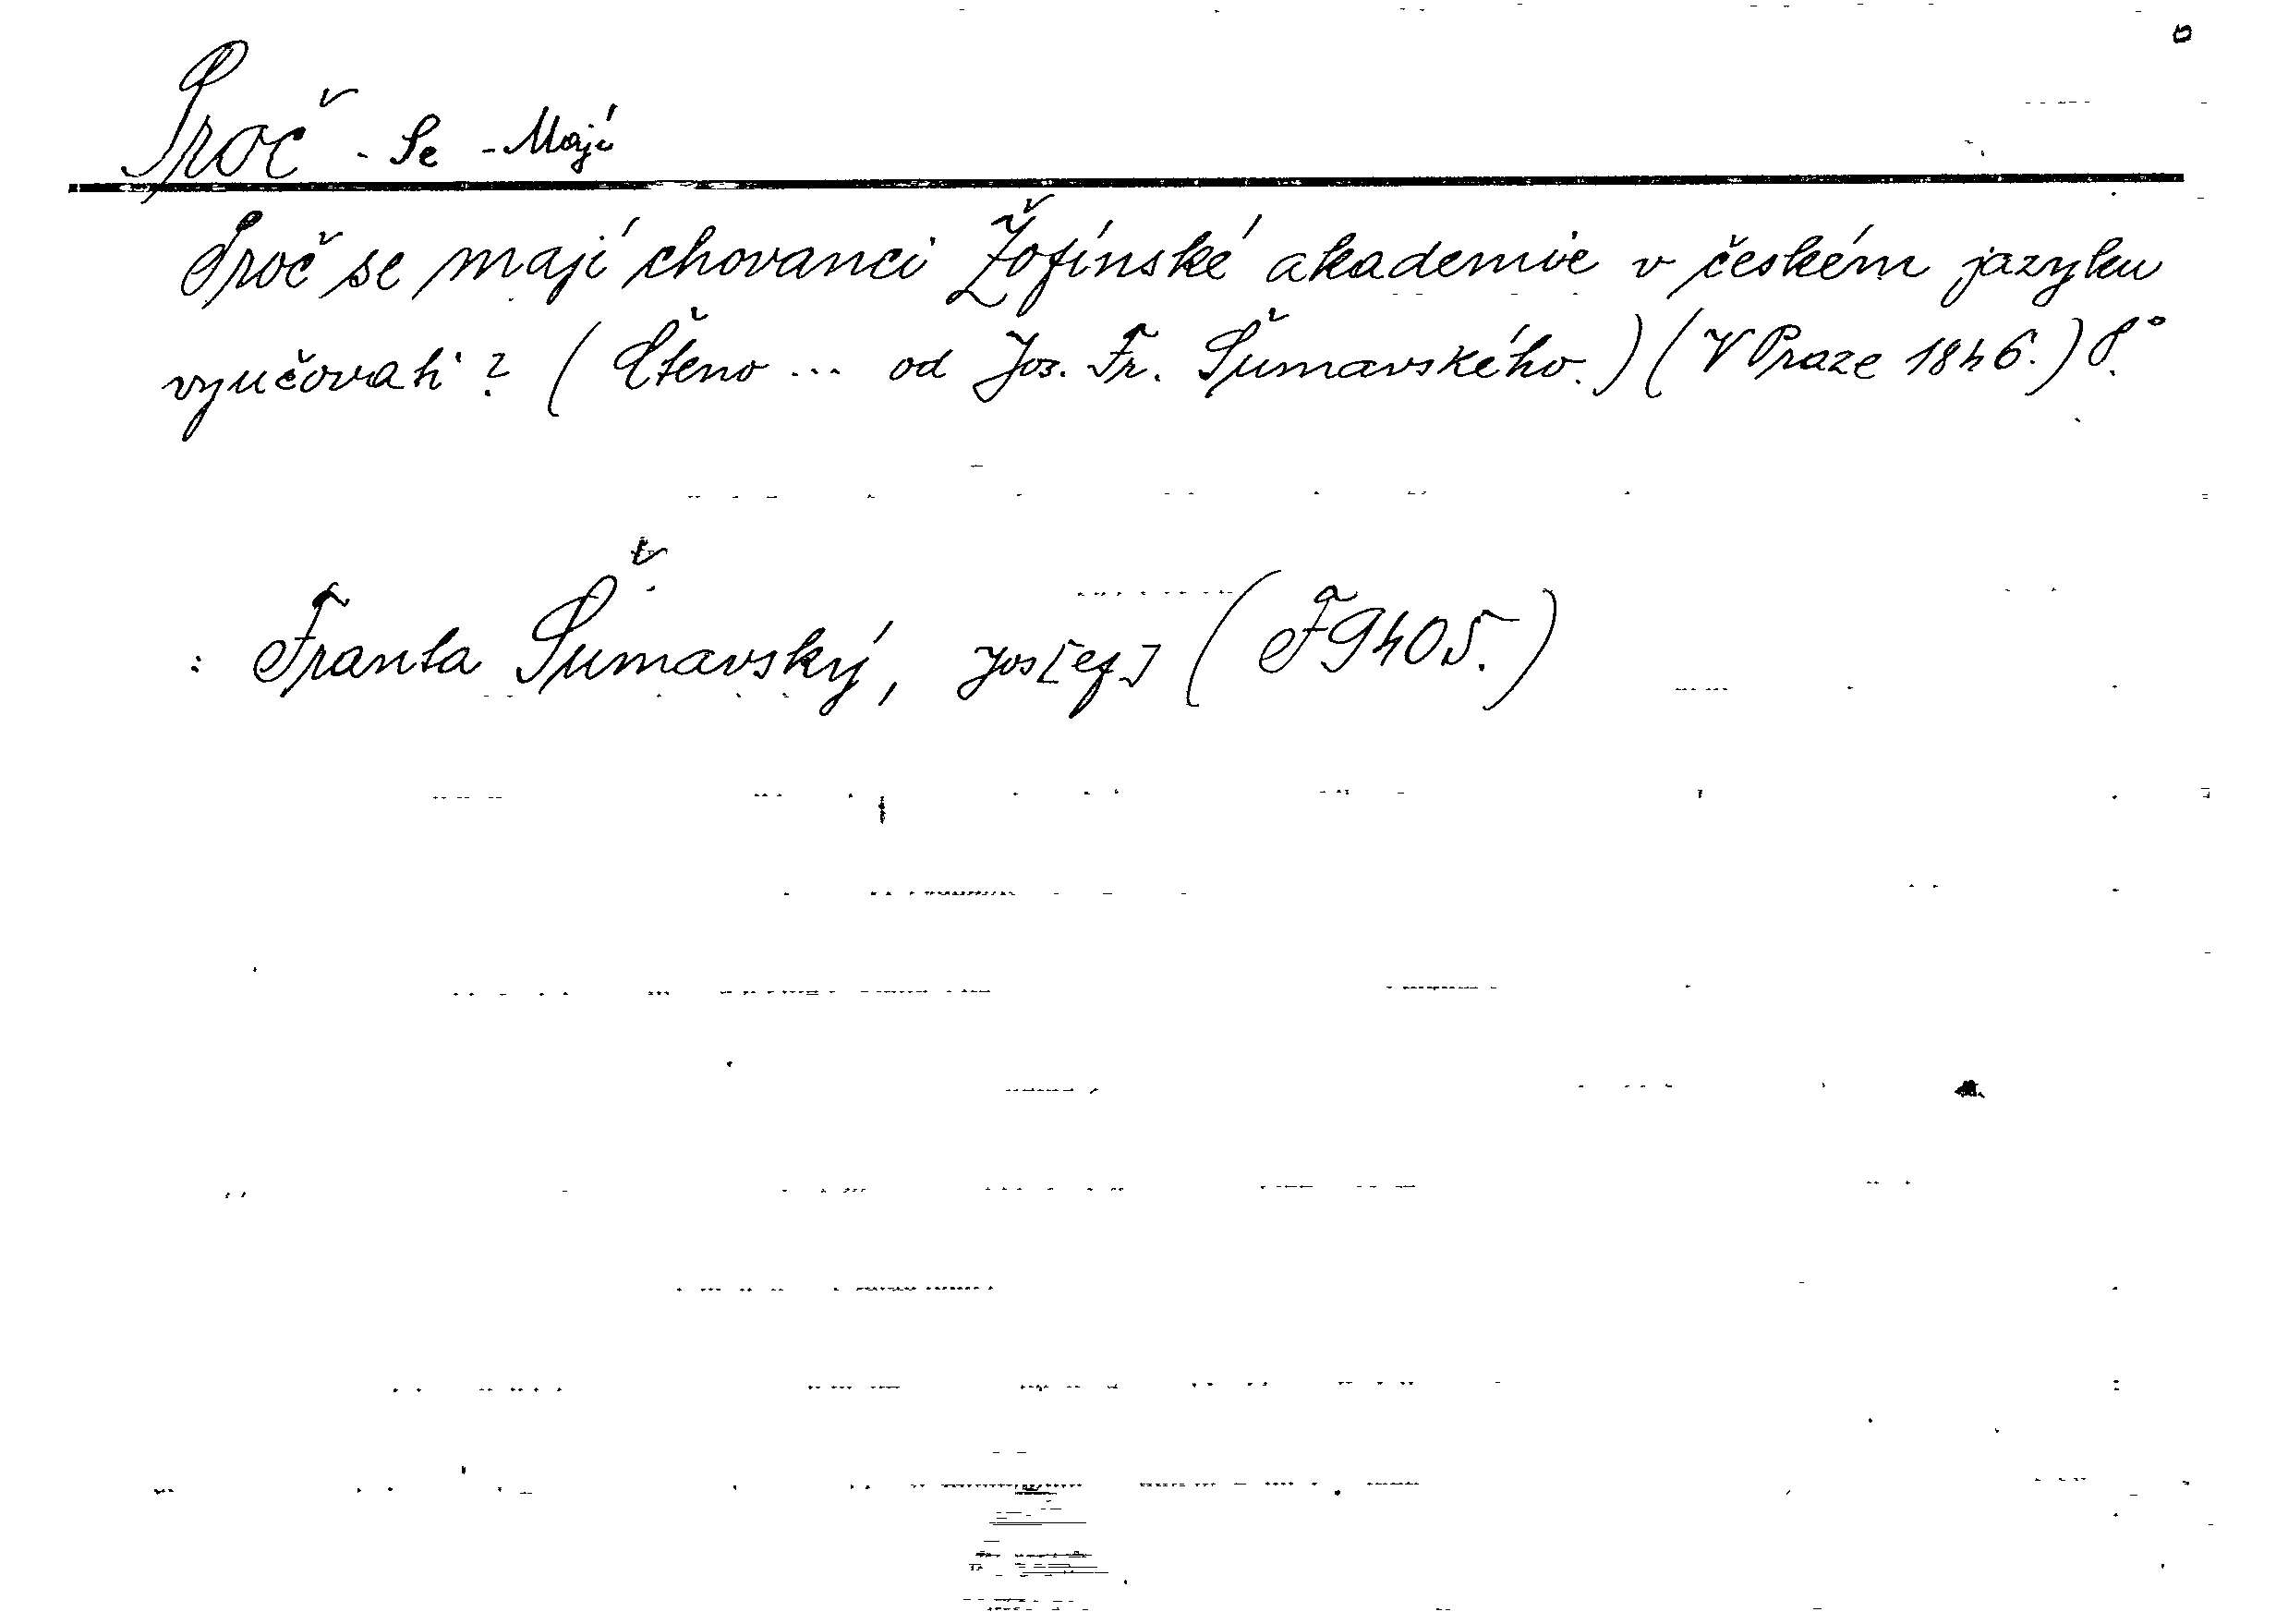 Proč - Se - Mají
Proč se mají chovanci Žofínské akademie v českém jazyku
vyučovati? (Čteno ... od Jos. Fr. Šumavského.) (V Praze 1846.) 8°.
: Franta Šumavský, Jos[ef] (F9405.)